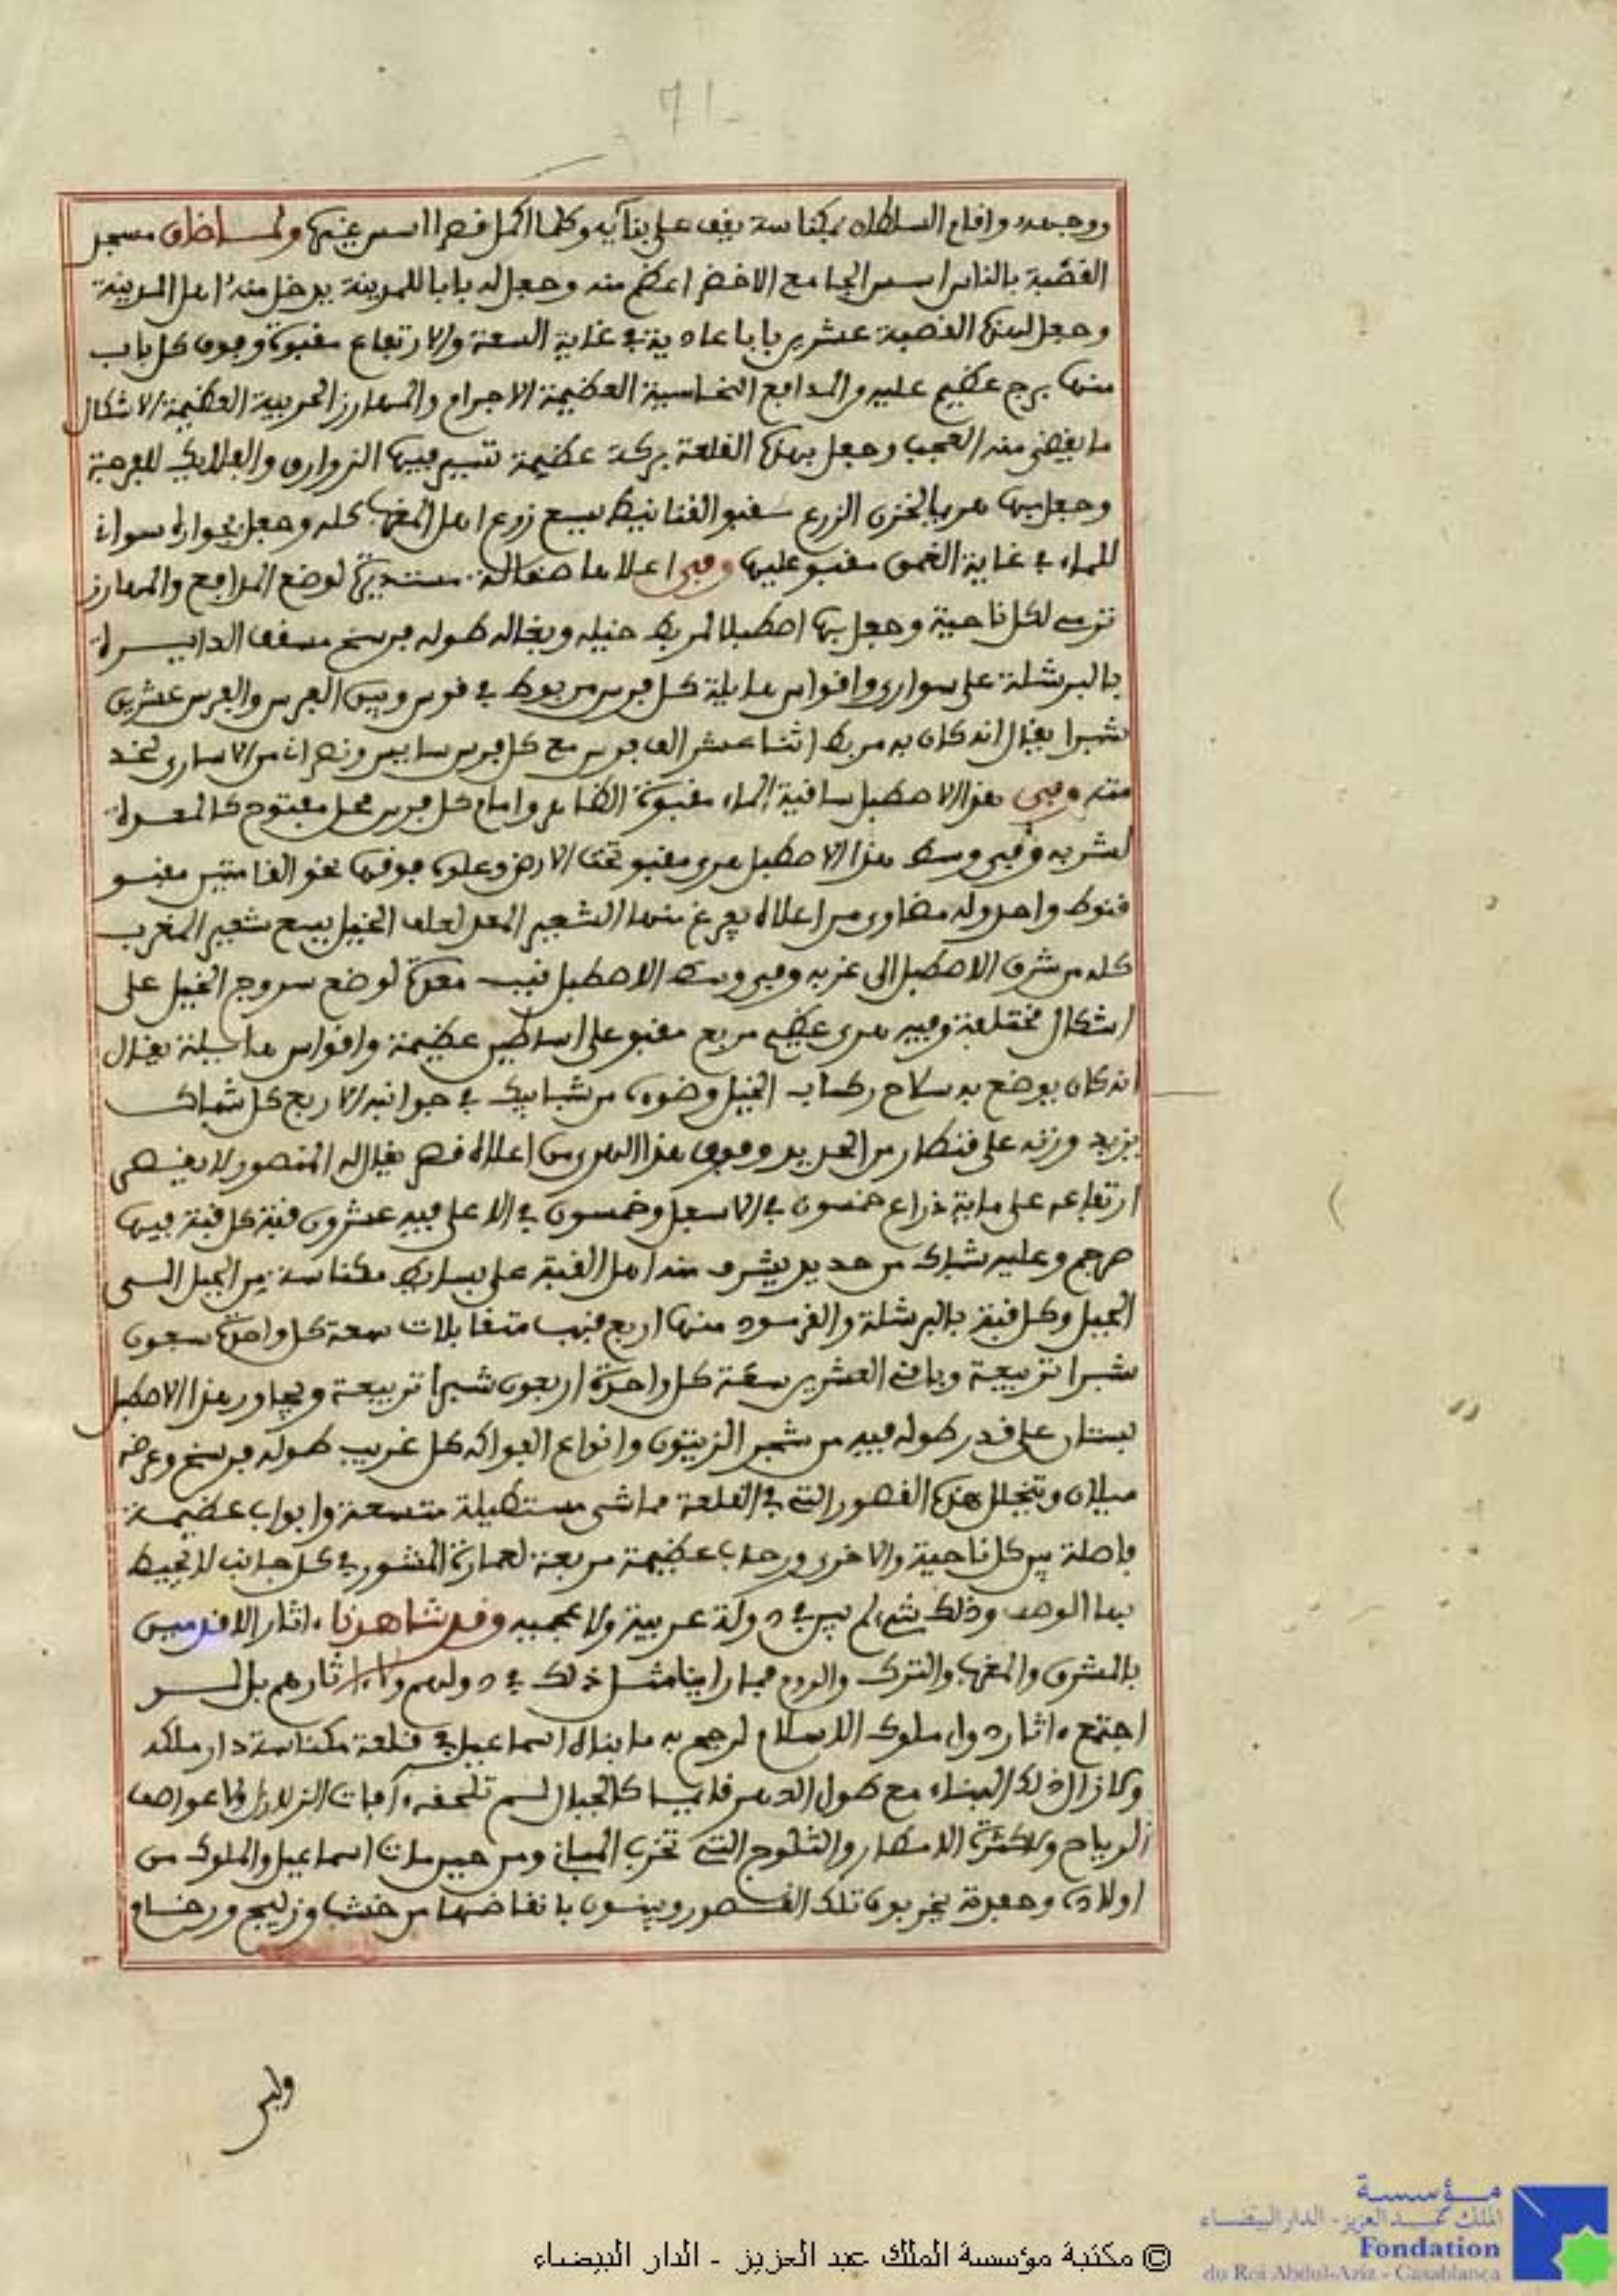 -71
ووجهه واقام السلطان بمكناسة يقف على بنائه وكلما اكمل قصرا اسس غيرها ولما ضاق مسجد
القصبة بالناس اسس الجامع الاخضر اعظم منه وجعل له بابا للمدينة يدخل منه اهل المدينة
وجعل لهذه القصبة عشرين بابا عادية في غاية السعة والارتفاع مقبوة وفوق كل باب
منها برج عظيم عليه من المدافع النحاسية العظيمة الاجرام والمهارز الحربية العظيمة الاشكال
ما يقضى منه العجب وجعل بهذه القلعة بركة عظيمة تسير فيها الزوارق والفلايك للفرجة
وجعل بها هريا لخزن الزرع مقبو القنانيط يسع زرع اهل المغرب كله وجعل بجواره سوانى
للماء في غاية العمق مقبو عليها وفي اعلاها صقالة مستديرة لوضع المدافع والمهارز
ترمى لكل ناحية وجعل بها اصطبلا لربط خيله وبغاله طوله فرسخ مسقف الدايرة
بالبرشلة على سوارى واقواس هايلة كل فرس مربوط في قوس وبين الفرس والفرس عشرين
شبرا يقال انه كان به مربط اثنا عشر الف فرس مع كل فرس سايس ونصرانى من الاسارى لخد
متنه وفي هذا الاصطبل ساقية الماء مقبوة الظاهر وامام كل فرس محل مفتوح كالمعدة
لشربه وفي وسط هذا الاصطبل هرى مقبو تحت الارض وعلوه فوقها نحو القامتين مقبو
قنوط واحد وله مضاوى من اعلاه يفرغ منها الشعير المعد لعلف الخيل يسع شعير المغرب
كله من شرق الاصطبل الى غربه وفي وسط الاصطبل قبب معدة لوضع سروج الخيل على
اشكال مختلفة وفيه هرى عظيم مربع مقبو على اساطين عظيمة واقواس هايلة يقال
انه كان يوضع به سلاح ركاب الخيل وضوءه من شبابيك في جوانبه الاربع كل شباك
يزيد وزنه على قنطار من الحديد وفوق هذا الهرى من اعلاه قصر يقال له المنصور لا يقصى
ارتفاعه على ماية ذراع خمسون في الاسفل وخمسون في الاعلى فيه عشرون قبة كل قبة فيها
صرجم وعليه شباك من حديد يشرف منه اهل القبة على بساط مكناسة من الجبل الى
الجبل وكل قبة بالبرشلة والقرمود منها اربع قبب متقابلات سعة كل واحدة سبعون
شبرا تربيعة وباقى العشرين سعة كل واحدة اربعون شبرا تربيعة ويجاور هذا الاصطبل
بستان على قدر طوله فيه من شجر الزيتون وانواع الفواكه كل غريب طوله فرسخ وعرضه
ميلان ويتخلل هذه القصور التى في القلعة مماشى مستطيلة متسعة وابواب عظيمة
فاصلة بين كل ناحية والاخرى ورحاب عظيمة مربعة لعمارة المشور في كل جانب لا يحيط
بها الوصف وذلك شىء لم يبن في دولة عربية ولا عجمية وقد شاهدنا ءاثار الاقدمين
بالمشرق والمغرب والترك والروم فما راينا مثل ذلك في دولهم ولا ءاثارهم بل لو
اجتمع ءاثار دول ملوك الاسلام لرجح به ما بناه اسماعيل في قلعة مكناسة دار ملكه
ولا زال ذلك البناء مع طول الدهر قايما كالجبال لم تلحقه ءافات الزلازل ولا عواصف
الرياح ولا كثرة الامطار والثلوج التى تخرب المبانى ومن حين مات اسماعيل والملوك من
اولاده وحفدته يخربون تلك القصور ويبنون بانقاضها من خشب وزليج ورخام
ولم
مؤسسة
الملك عبد العزيز - الدار البيضاء
Fondation
du Roi Abdul-Aziz - Casablanca
© مكتبة مؤسسة الملك عبد العزيز - الدار البيضاء